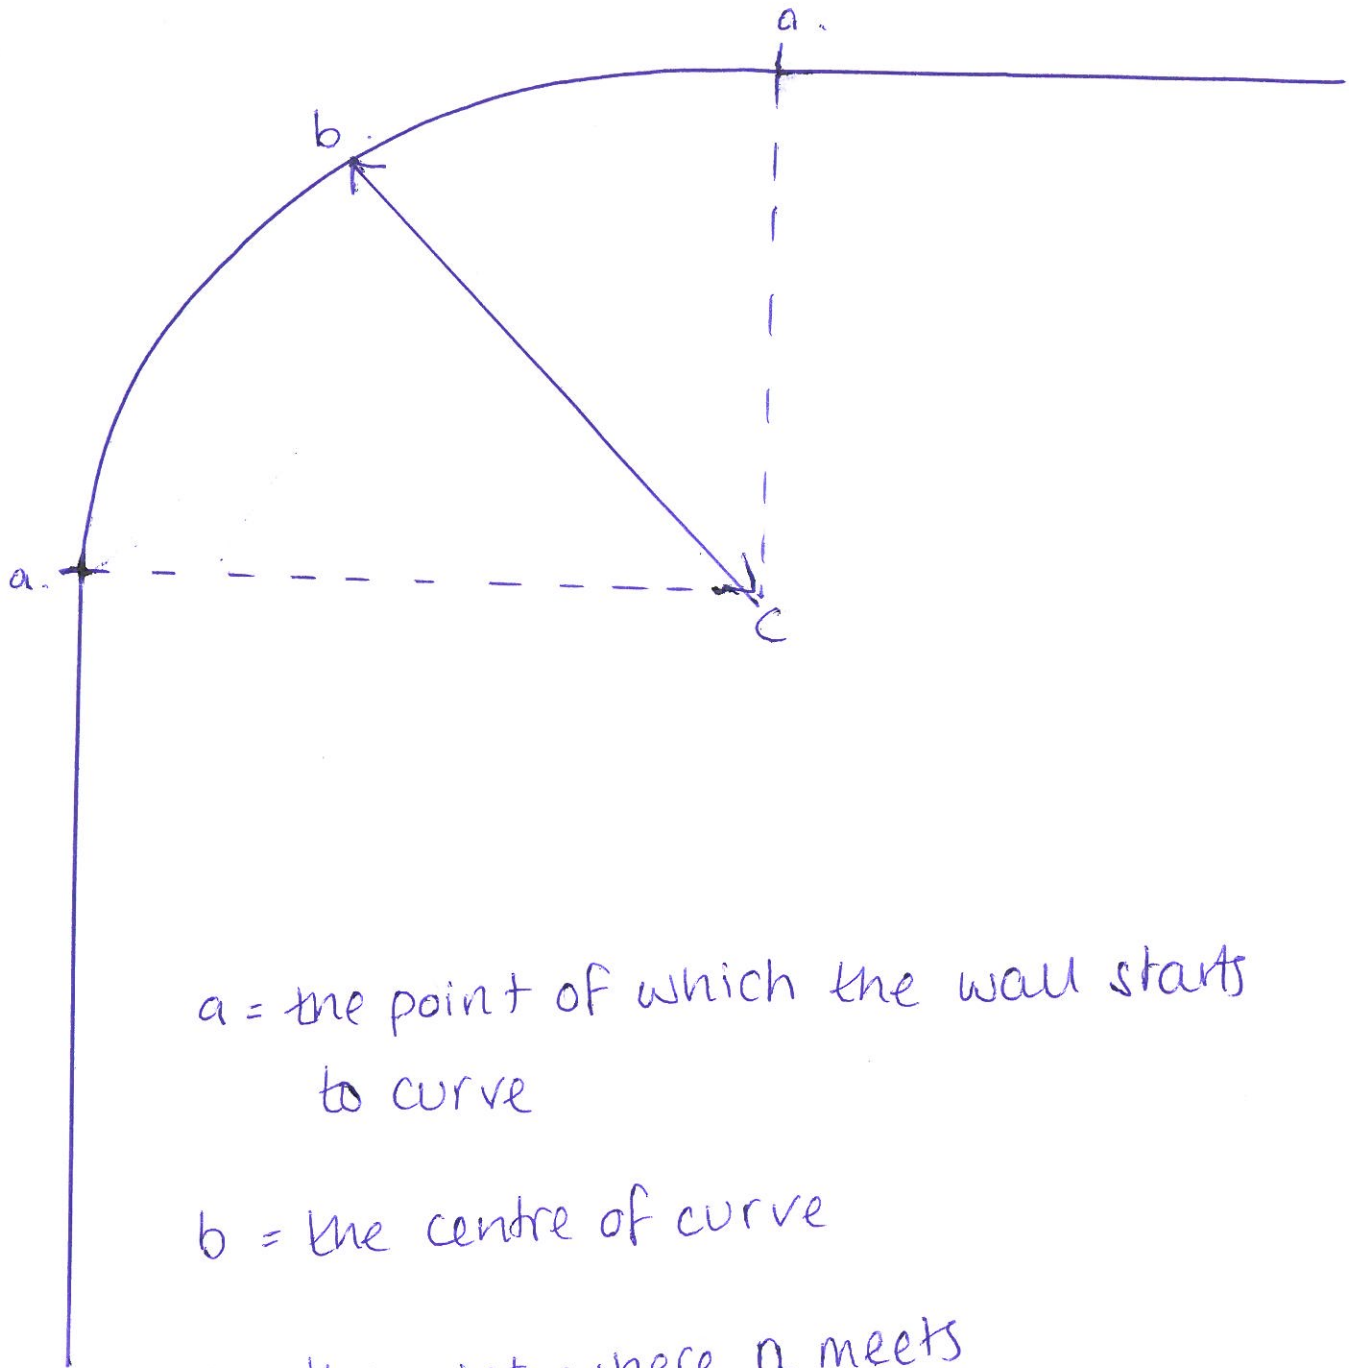 a.
b.
a.
C
a = the point of which the wall starts
to curve
b = the centre of curve
meets